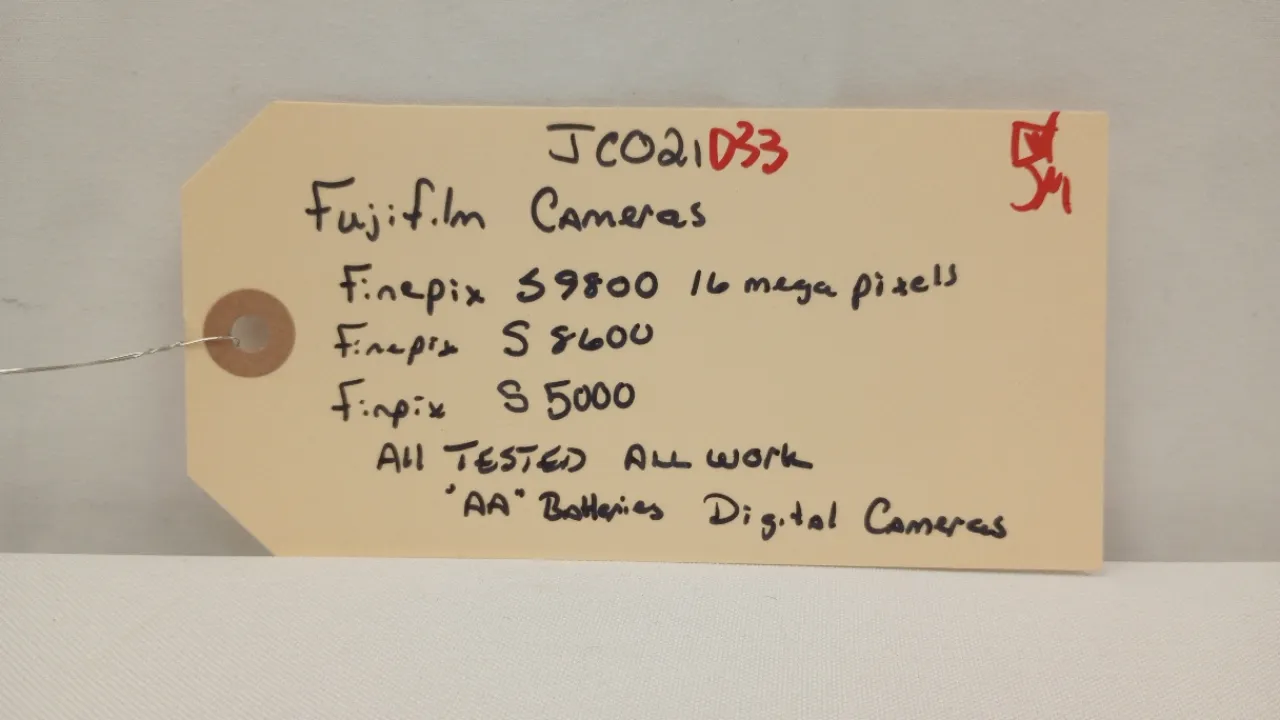 JCO21D33
Fujifilm Cameras
Finepix S9800 16 mega pixels
Finepix S 8600
Finpix S 5000
All TESTED ALL WORK
"AA" Batteries Digital Cameras